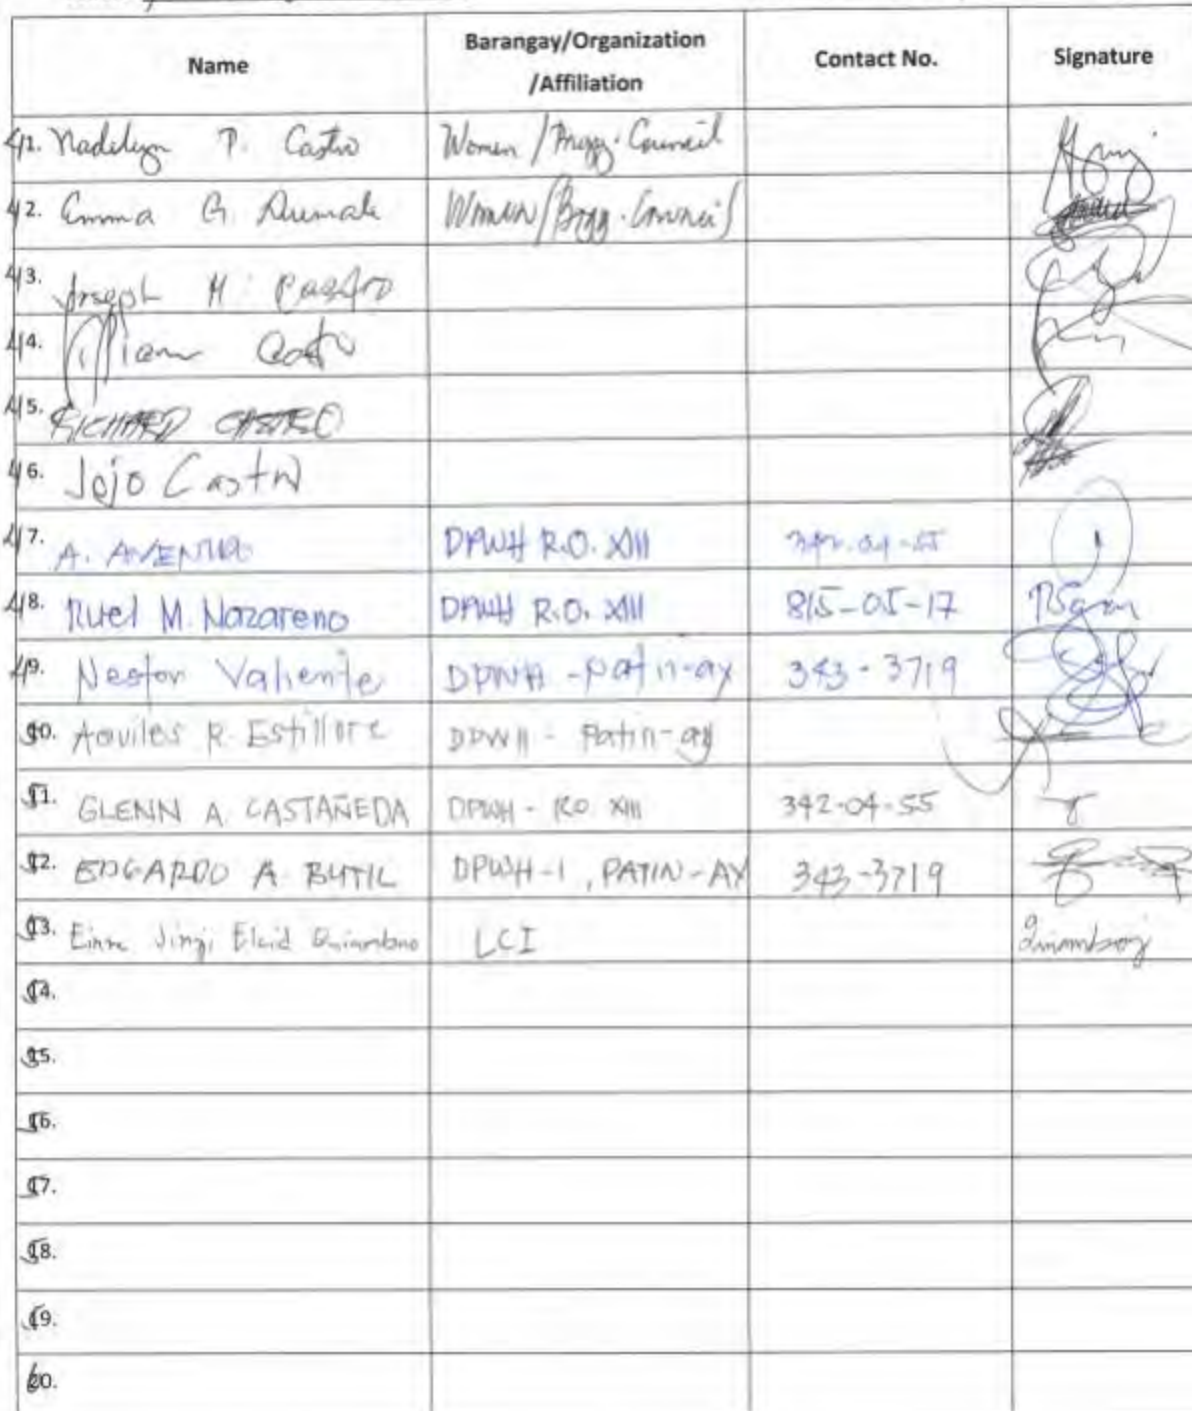 Name Barangay/Organization /Affiliation Contact No. Signature
41. Nadelyn P. Castro Women / Brgy. Council
42. Emma G. Dumale Women/Brgy. Council
43. Joseph M. Castro
44. William Castro
45. RICHARD CASTRO
46. Jojo Castro
47. A. AVENTUR DPWH R.O. XIII 342-04-55
48. Ruel M. Nazareno DPWH R.O. XIII 815-05-17
49. Nestor Valiente DPWH - Patin-ay 343-3719
50. Aquiles R. Estillore DPWH - Patin-ay
51. GLENN A. CASTAÑEDA DPWH - R.O. XIII 342-04-55
52. EDGARDO A. BUTIL DPWH-1, PATIN-AY 343-3719
53. Elcid LCI
54.
55.
56.
57.
58.
59.
60.